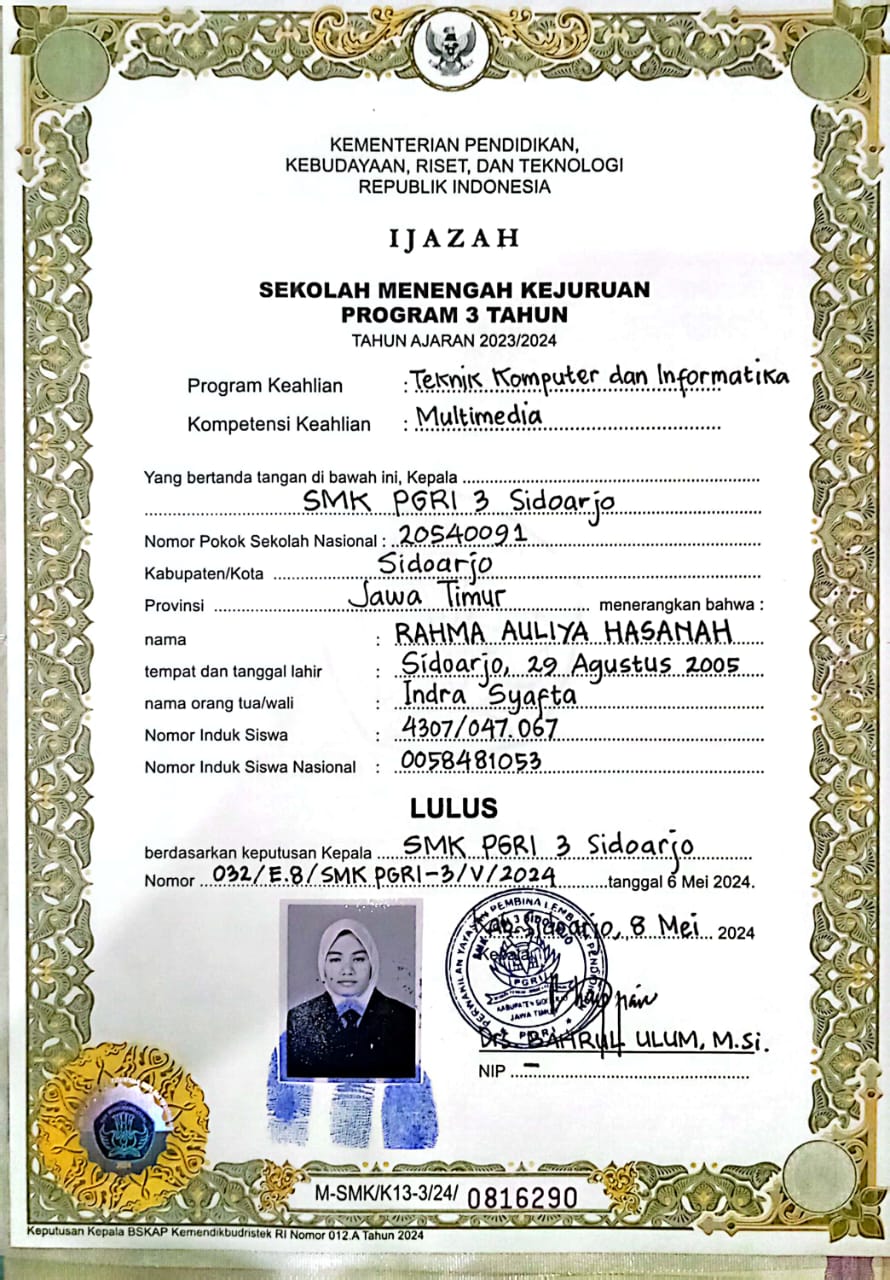 KEMENTERIAN PENDIDIKAN,
KEBUDAYAAN, RISET, DAN TEKNOLOGI
REPUBLIK INDONESIA
IJAZAH
SEKOLAH MENENGAH KEJURUAN
PROGRAM 3 TAHUN
TAHUN AJARAN 2023/2024
Program Keahlian : Teknik Komputer dan Informatika
Kompetensi Keahlian : Multimedia
Yang bertanda tangan di bawah ini, Kepala
SMK PGRI 3 Sidoarjo
Nomor Pokok Sekolah Nasional : 20540091
Kabupaten/Kota Sidoarjo
Provinsi Jawa Timur menerangkan bahwa :
nama : RAHMA AULIYA HASANAH
tempat dan tanggal lahir : Sidoarjo, 29 Agustus 2005
nama orang tua/wali : Indra Syafta
Nomor Induk Siswa : 4307/047.067
Nomor Induk Siswa Nasional : 0058481053
LULUS
berdasarkan keputusan Kepala SMK PGRI 3 Sidoarjo
Nomor 032/E.8/SMK PGRI-3/V/2024 tanggal 6 Mei 2024.
Kab. Sidoarjo, 8 Mei 2024
Kepala
PGRI
KABUPATEN SIDOARJO
JAWA TIMUR
PGRI
Drs. BAHRUL ULUM, M.Si.
NIP -
M-SMK/K13-3/24/ 0816290
Keputusan Kepala BSKAP Kemendikbudristek RI Nomor 012.A Tahun 2024